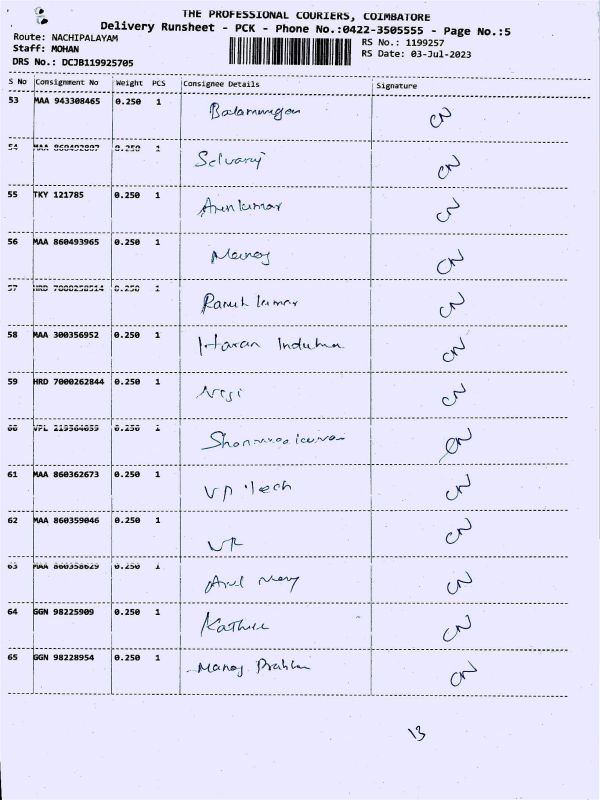 THE PROFESSIONAL COURIERS, COIMBATORE
Delivery Runsheet - PCK - Phone No.:0422-3505555 - Page No.:5
Route: NACHIPALAYAM
RS No.: 1199257
Staff: MOHAN
RS Date: 03-Jul-2023
DRS No.: DCJB119925705
S No Consignment No Weight PCS Consignee Details Signature
53 MAA 943308465 0.250 1 Balamurugan CN
54 MAA 0.250 1 Selvaraj CN
55 TKY 121785 0.250 1 Arunkumar CN
56 MAA 860493965 0.250 1 Manoj CN
57 HRD 0.250 1 kumar CN
58 MAA 300356952 0.250 1 Haran Induhma CN
59 HRD 7000262844 0.250 1 CN
VPL 0.250 1 CN
61 MAA 860362673 0.250 1 VP Tech CN
62 MAA 860359046 0.250 1 CN
63 MAA 860358629 0.250 1 Arul Mary CN
64 GGN 98225909 0.250 1 CN
65 GGN 98228954 0.250 1 Manoj Prabhu CN
13